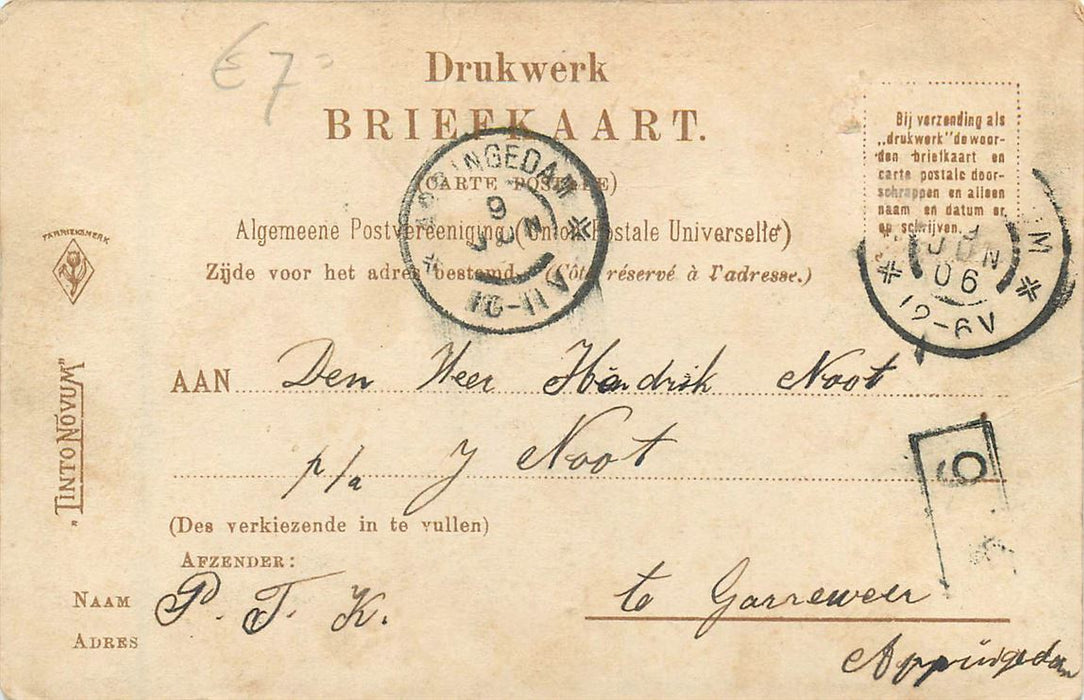 € 7
Drukwerk
BRIEFKAART.
(CARTE POSTALE)
Algemeene Postvereeniging (Union Postale Universelle)
Zijde voor het adres bestemd. (Côté réservé à l'adresse.)
Bij verzending als
„drukwerk" de woor-
den briefkaart en
carte postale door-
schrappen en alleen
naam en datum er
op schrijven.
APPINGEDAM
9
JUN
M
9
JUN
06
12-6V
FABRIEKSMERK
"TINTO NOVUM"
AAN Den Heer Hendrik Noot
p/a J Noot
6
(Des verkiezende in te vullen)
AFZENDER:
NAAM P. T. K.
ADRES
te Garreweer
Appingedam